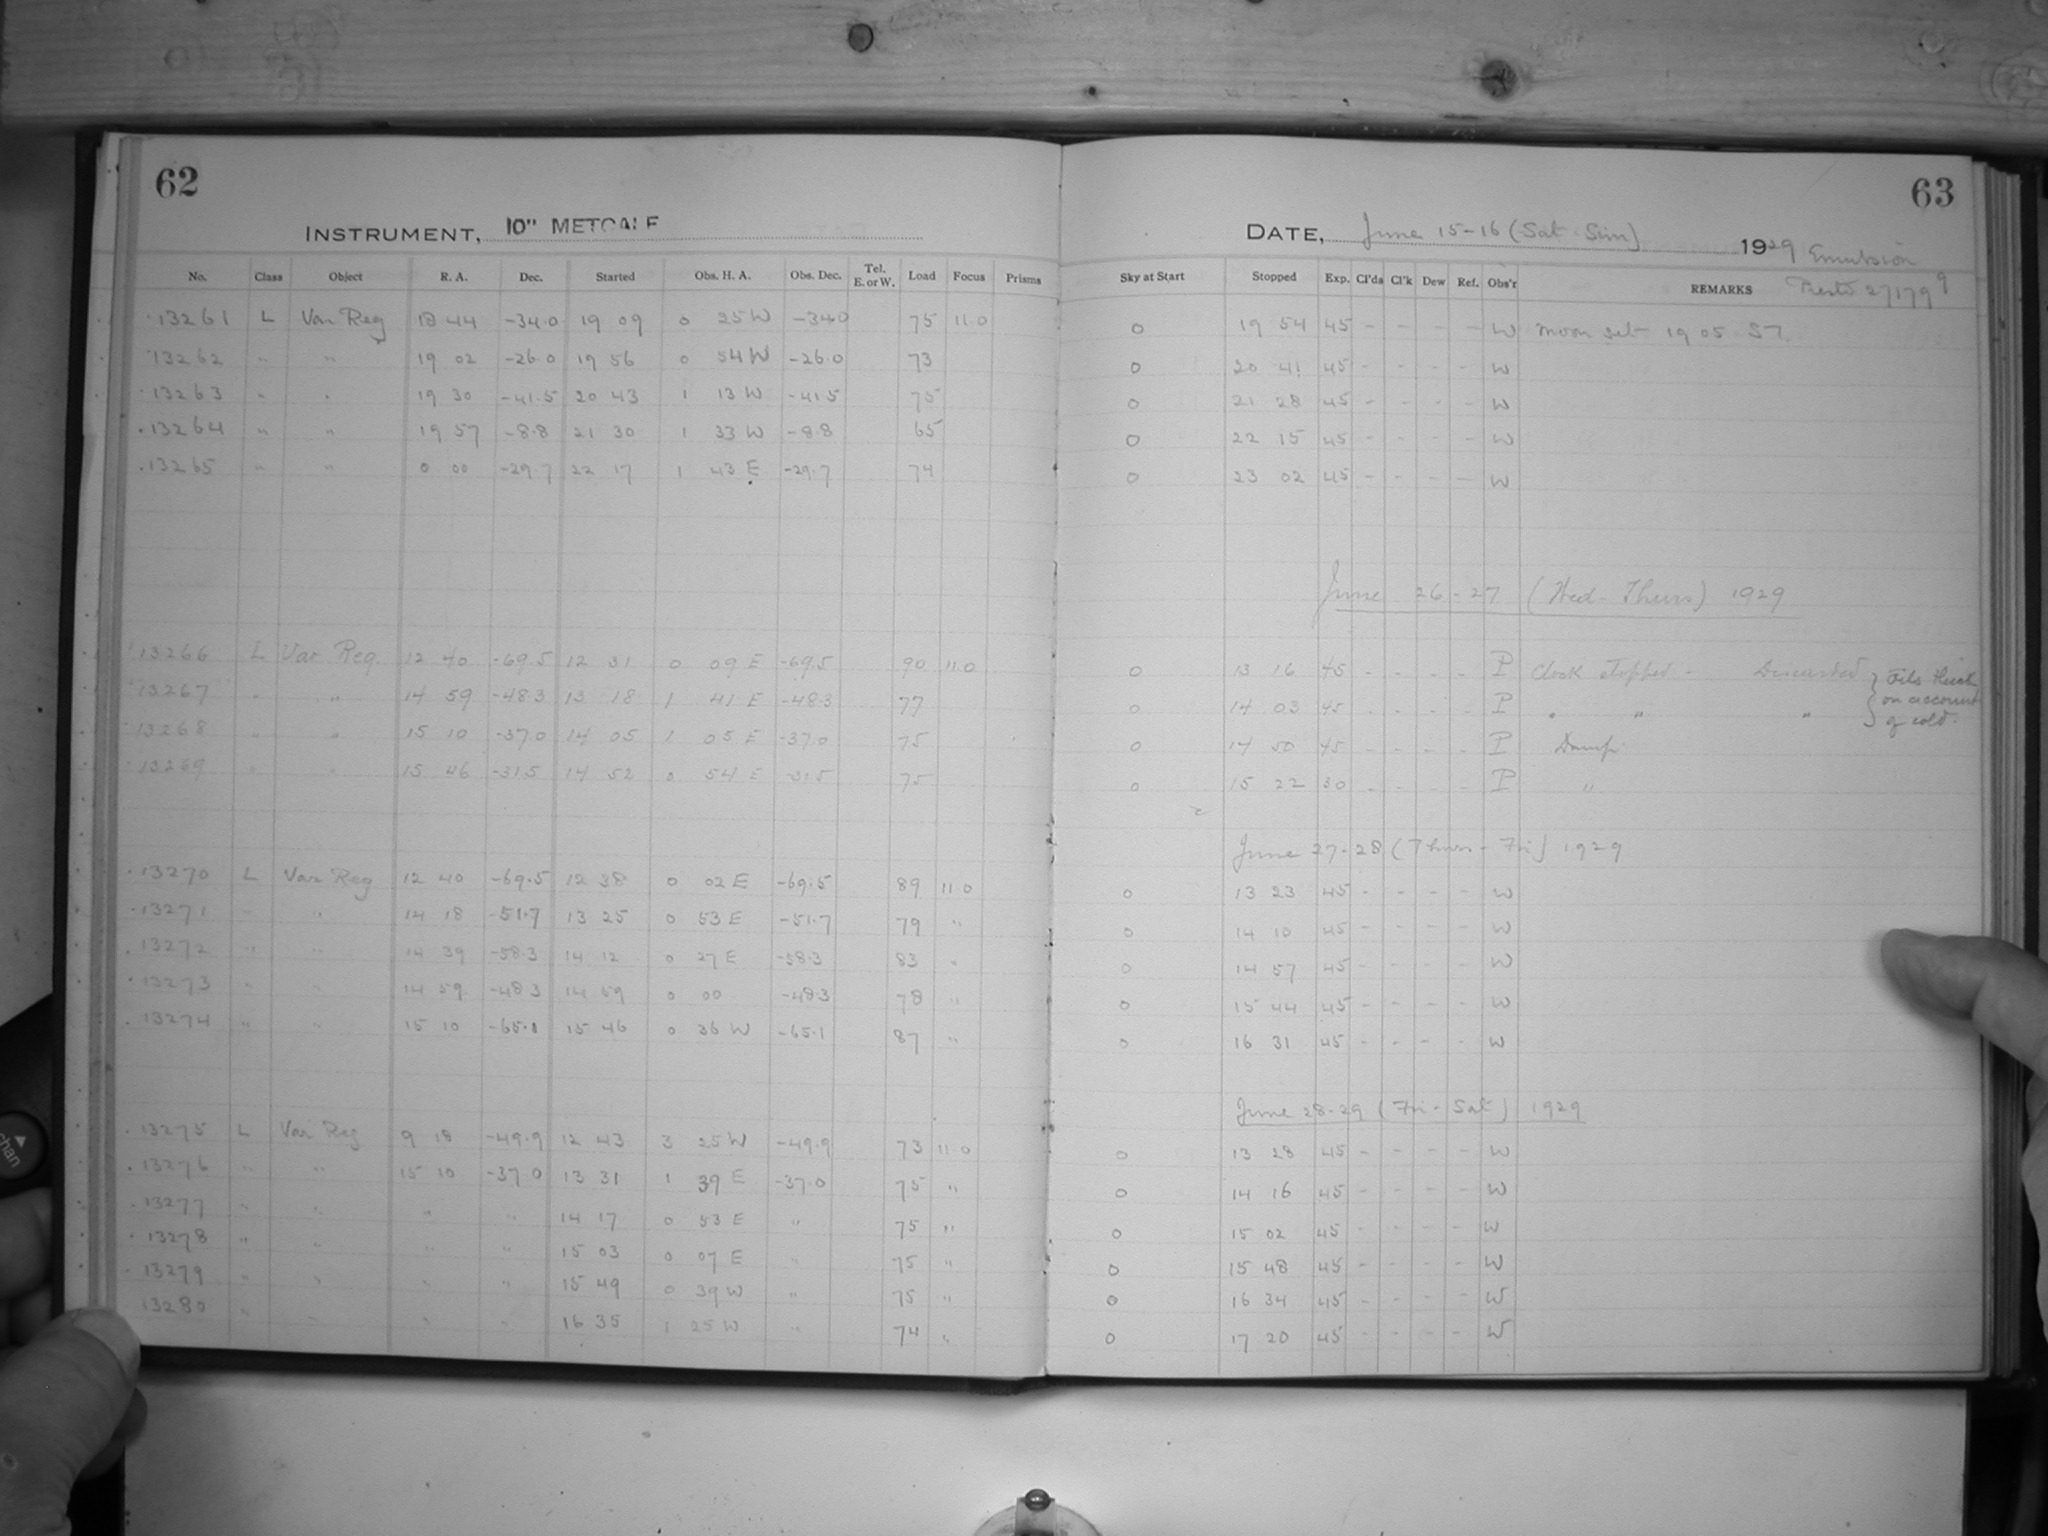 62
INSTRUMENT, 10" METCALF
No. Class Object R. A. Dec. Started Obs. H. A. Obs. Dec. Tel. E. or W. Load Focus Prisms
13261 L Var Reg 18 44 -34.0 19 09 0 25 W -34.0 75 11.0
13262 " " 19 02 -26.0 19 56 0 54 W -26.0 73
13263 " " 19 30 -41.5 20 43 1 13 W -41.5 75
13264 " " 19 57 -8.8 21 30 1 33 W -8.8 65
13265 " " 0 00 -29.7 22 17 1 43 E -29.7 74
13266 L Var Reg. 12 40 -69.5 12 31 0 09 E -69.5 90 11.0
13267 " " 14 59 -48.3 13 18 1 41 E -48.3 77
13268 " " 15 10 -37.0 14 05 1 05 E -37.0 75
13269 " " 15 46 -31.5 14 52 0 54 E -31.5 75
13270 L Var Reg 12 40 -69.5 12 38 0 02 E -69.5 89 11.0
13271 " " 14 18 -51.7 13 25 0 53 E -51.7 79 "
13272 " " 14 39 -58.3 14 12 0 27 E -58.3 83 "
13273 " " 14 59 -48.3 14 59 0 00 -48.3 78 "
13274 " " 15 10 -65.1 15 46 0 36 W -65.1 87 "
13275 L Var Reg 9 18 -49.9 12 43 3 25 W -49.9 73 11.0
13276 " " 15 10 -37.0 13 31 1 39 E -37.0 75 "
13277 " " " " 14 17 0 53 E " 75 "
13278 " " " " 15 03 0 07 E " 75 "
13279 " " " " 15 49 0 39 W " 75 "
13280 " " " " 16 35 1 25 W " 74 "
63
DATE, June 15-16 (Sat Sun) 1929 Emulsion
Sky at Start Stopped Exp. Cl'ds Cl'k Dew Ref. Obs'r REMARKS 27179
0 19 54 45 - - - - W Moon set 19 05 ST.
0 20 41 45 - - - - W
0 21 28 45 - - - - W
0 22 15 45 - - - - W
0 23 02 45 - - - - W
June 26-27 (Wed-Thurs) 1929
0 13 16 45 - - - - P Clock stopped - Discarded } Oils thick
0 14 03 45 - - - - P " " " on account
of cold.
0 14 50 45 - - - - P Damp
0 15 22 30 - - - - P "
June 27-28 (Thurs-Fri) 1929
0 13 23 45 - - - - W
0 14 10 45 - - - - W
0 14 57 45 - - - - W
0 15 44 45 - - - - W
0 16 31 45 - - - - W
June 28-29 (Fri-Sat) 1929
0 13 28 45 - - - - W
0 14 16 45 - - - - W
0 15 02 45 - - - - W
0 15 48 45 - - - - W
0 16 34 45 - - - - W
0 17 20 45 - - - - W